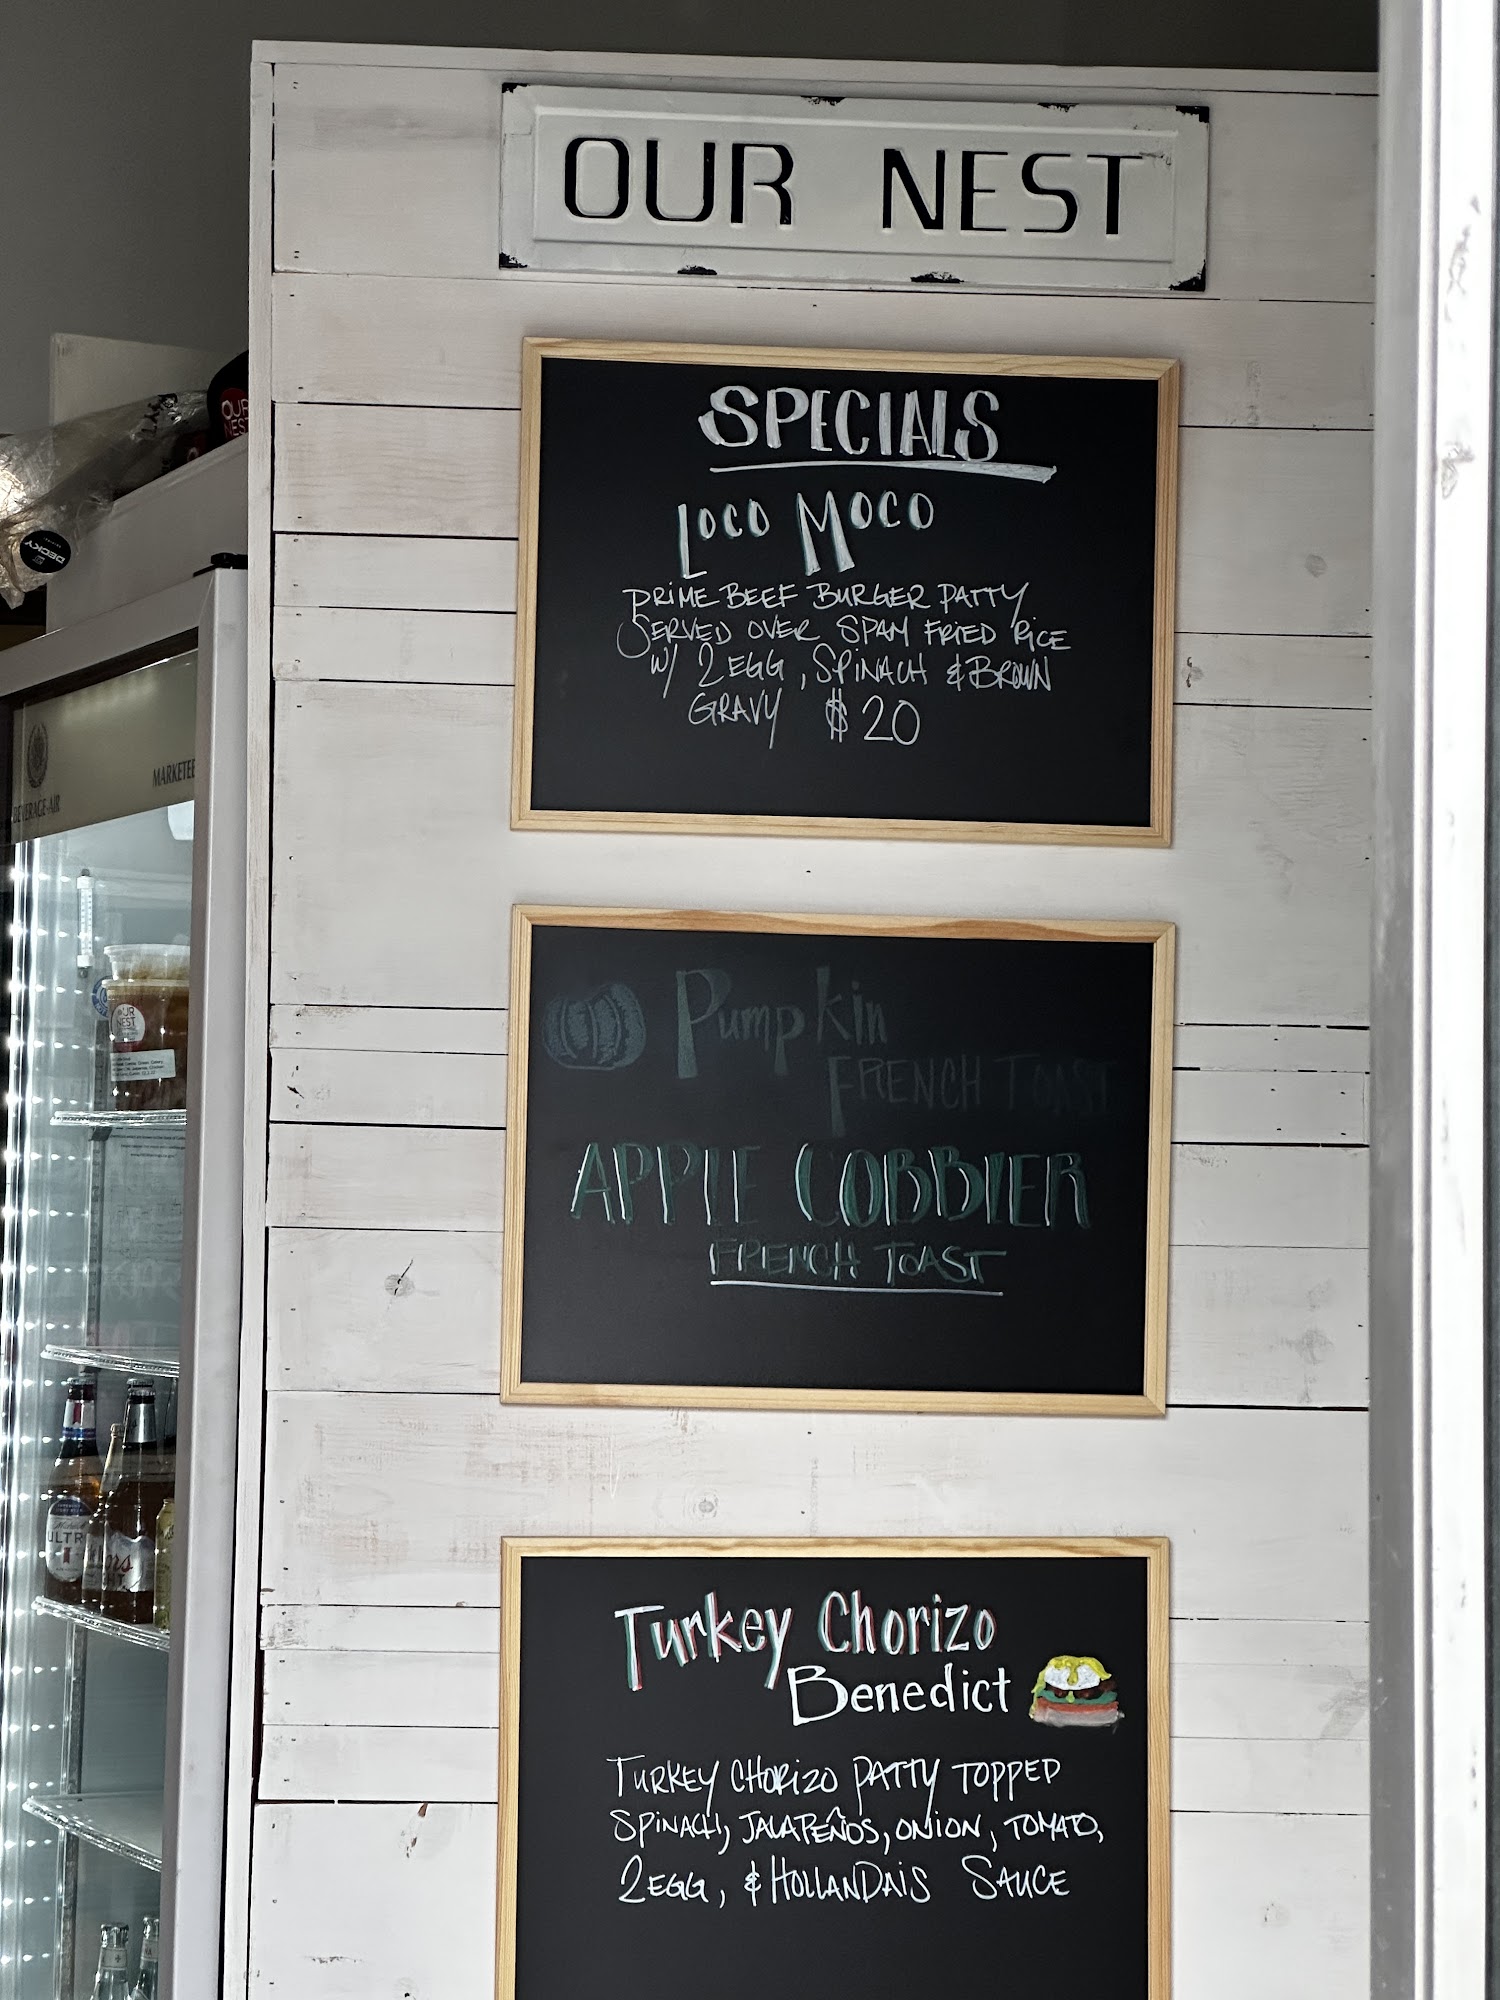 OUR NEST
SPECIALS
LOCO MOCO
PRIME BEEF BURGER PATTY
SERVED OVER SPAM FRIED RICE
W/ 2 EGG, SPINACH & BROWN
GRAVY $20
Pumpkin
FRENCH TOAST
APPLE COBBLER
FRENCH TOAST
Turkey Chorizo
Benedict
TURKEY CHORIZO PATTY TOPPED
SPINACH, JALAPEÑOS, ONION, TOMATO,
2 EGG, & HOLLANDAIS SAUCE
OUR
NEST
DECKY
MARKETEE
BEVERAGE-AIR
OUR
NEST
ULTR